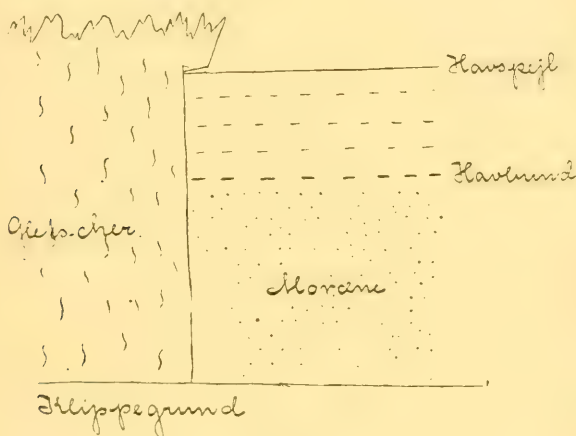 Havspejl
Havbund
Gletscher
Moræne
Klippegrund